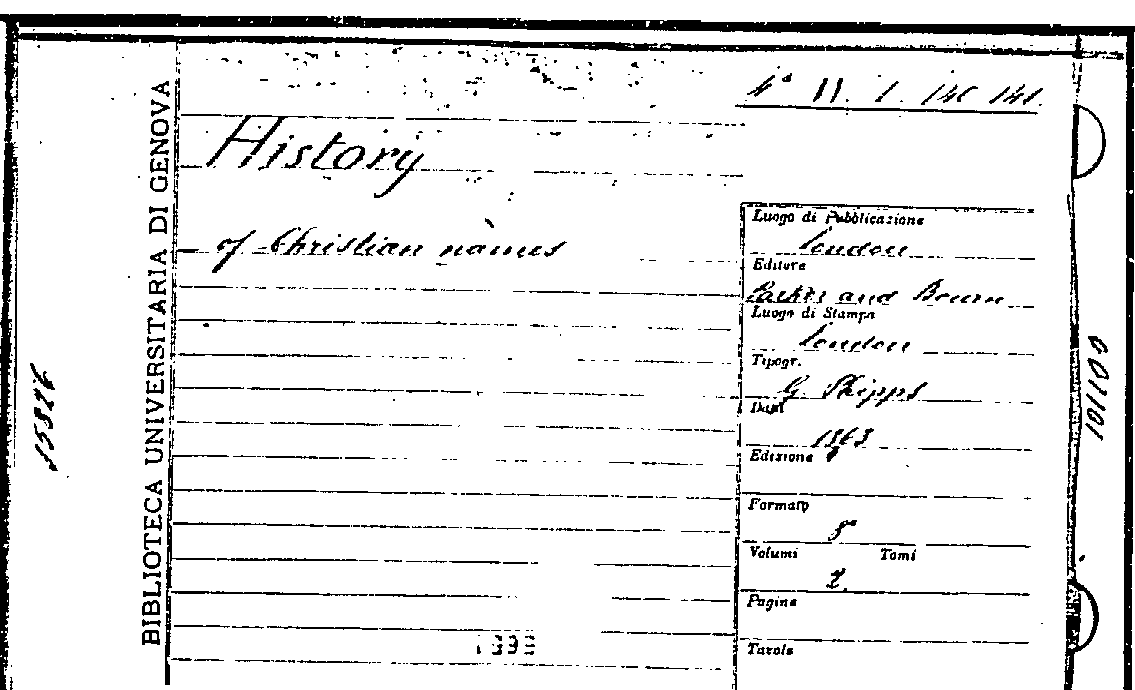 History
of Christian names
Luogo di Pubblicazione
London
Editore
Parker and Bourn
Luogo di Stampa
London
Tipogr.
G. Phipps
Data
1863
Edizione
Formato
8°
Volumi Tomi
2.
Pagine
Tavole
BIBLIOTECA UNIVERSITARIA DI GENOVA
15326
001101